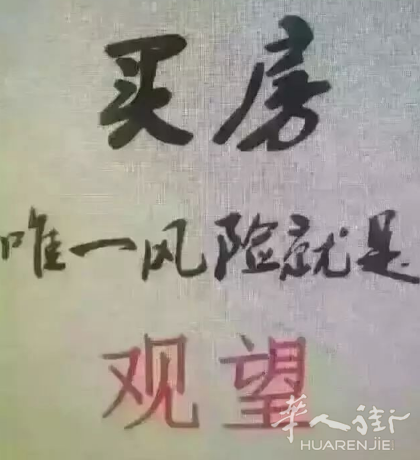 买房
唯一风险就是
观望
华人街
HUARENJIE